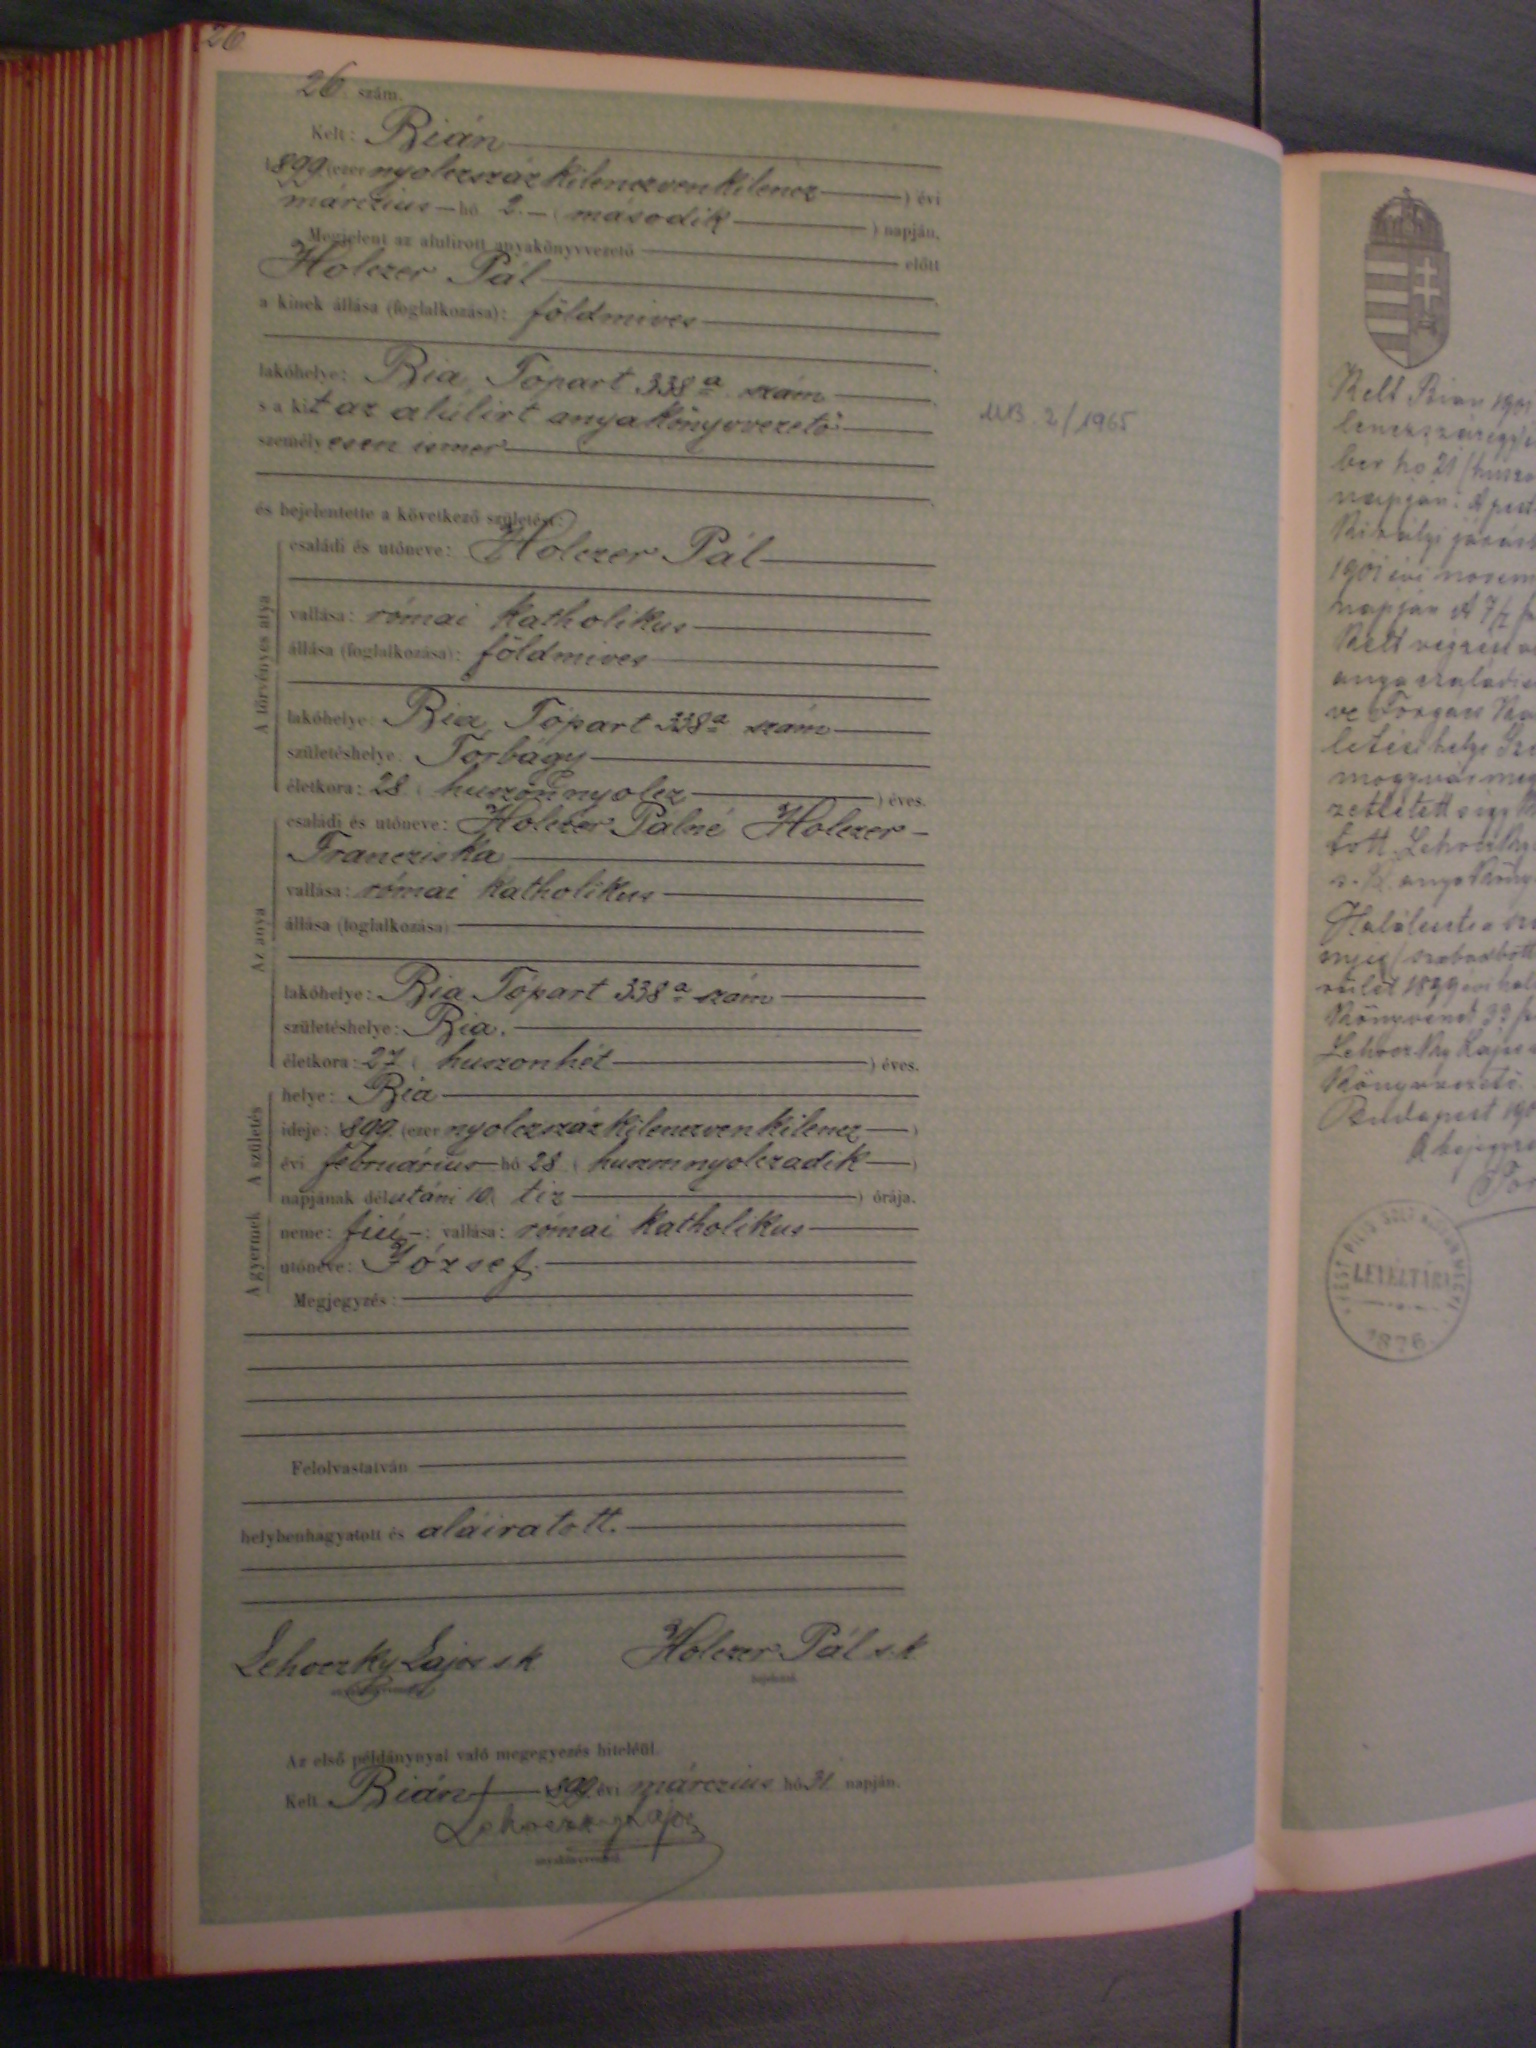 26
26 szám.
Kelt: Bián
1899 (ezer nyolczszáz kilenczven kilencz ) évi
márczius hó 2. ( második ) napján.
Megjelent az alulirott anyakönyvvezető előtt
Holczer Pál
a kinek állása (foglalkozása): földmives
lakóhelye: Bia, Tópart 338a szám
s a kit az alúlirt anyakönyvvezető
személyesen ismer
és bejelentette a következő születést:
A törvényes atya
családi és utóneve: Holczer Pál
vallása: római katholikus
állása (foglalkozása): földmives
lakóhelye: Bia, Tópart 338a szám
születéshelye: Torbágy
életkora: 28 ( huszonnyolcz ) éves.
Az anya
családi és utóneve: Holczer Pálné Holczer
Francziska
vallása: római katholikus
állása (foglalkozása)
lakóhelye: Bia Tópart 338a szám
születéshelye: Bia.
életkora: 27 ( huszonhét ) éves.
A születés
helye: Bia
ideje: 1899. (ezer nyolczszáz kilenczven kilencz )
évi februárius hó 28 ( huszonnyolczadik )
napjának délutáni 10 ( tiz ) órája.
A gyermek
neme: fiú; vallása: római katholikus
utóneve: József.
Megjegyzés:
Felolvastatván
helybenhagyatott és aláiratott.
Lehoczky Lajos s.k Holczer Pál s.k
Az első példánynyal való megegyezés hiteléül.
Kelt Bián 1899 évi márczius hó 31 napján.
Lehoczky Lajos
anyakönyvvezető
MB. 2/1965
Kelt Bián 1901
ber hó 21
napján. A pest
1901 évi novem
napján A 7/2
anya családi
letési helye
Lehoczky
s. k. anyaköny
1899 évi hal
Lehoczky Lajos
könyvvezető.
Budapest
A bejegyzé
LEVÉLTÁRA
1876